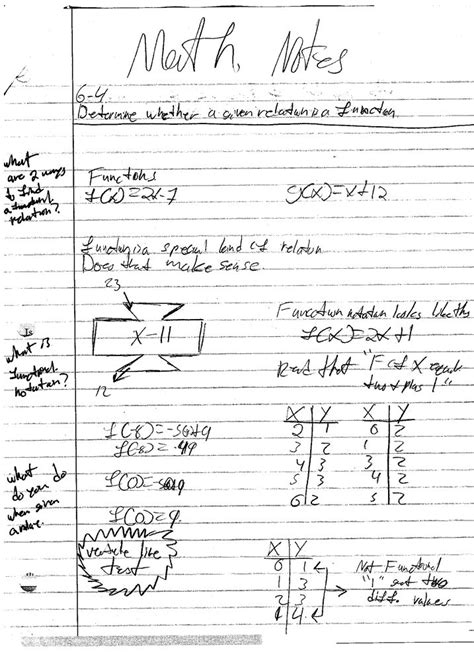 Math Notes
6-4
Determine whether a given relation is a function
what
are 2 ways
to find
a functional
relation?
Functions
f(x)=2x-7
g(x)=x+12
function is a special kind of relation
Does that make sense.
23
x-11
12
Function notation looks like this
f(x)=2x+1
Read that "F of X equals
two x plus 1"
Is
what is
functional
notation?
f(-8)=-5(
f(-8)=.49
f(0)=
f(0)=9.
X Y
2 1
3 2
4 3
5 3
6 2
X Y
0 2
1 2
3 2
4 2
5 2
what
do you do
when given
a value.
verticle line
test
X Y
0 1
1 3
2 3
1 4
Not Functional
"1" got two
diff. values